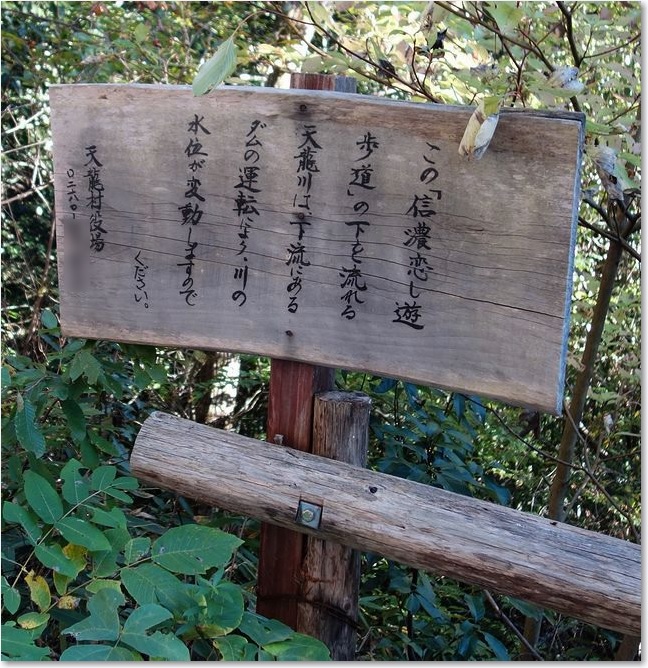 この「信濃恋し遊
歩道」の下を流れる
天龍川は、下流にある
ダムの運転により、川の
水位が変動しますので
ください。
天龍村役場
〇二六〇-